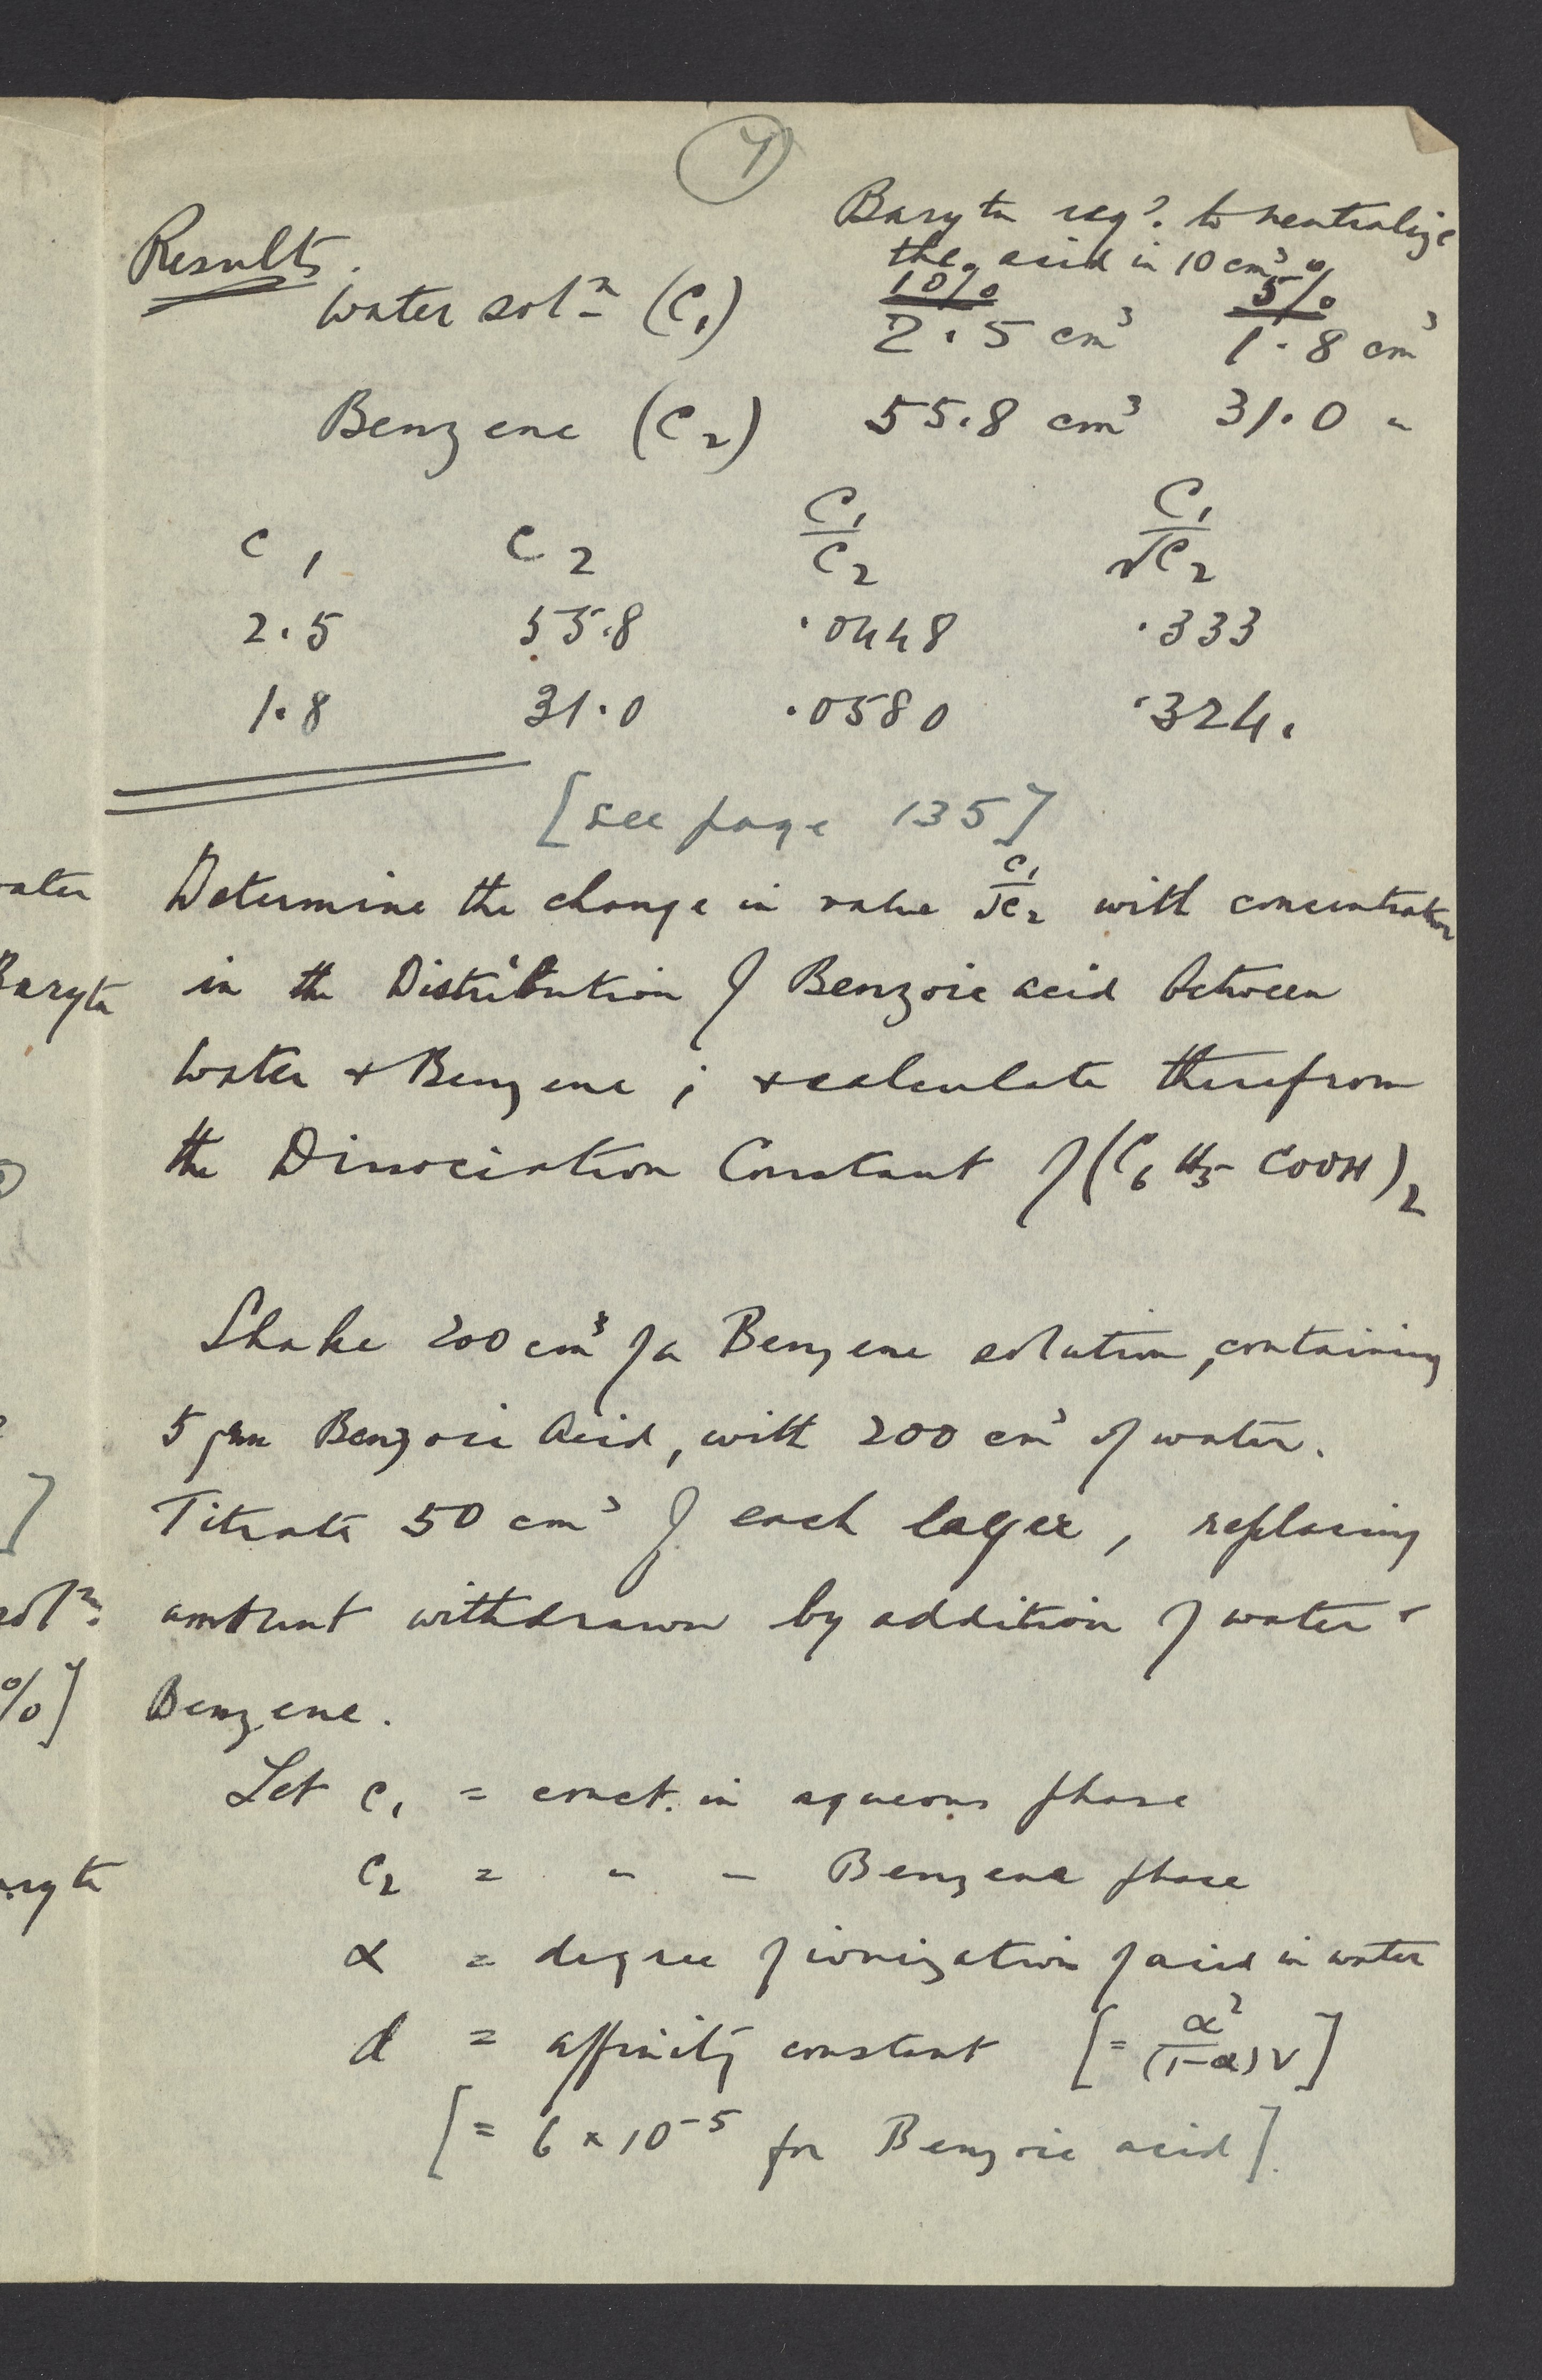 7
Baryta reqd. to neutralize
Results. the acid in 10 cm³
10% 5%
Water solⁿ (C₁) 2.5 cm³ 1.8 cm³
Benzene (C₂) 55.8 cm³ 31.0 "
C₁ C₂ C₁/C₂ C₁/√C₂
2.5 55.8 .0448 .333
1.8 31.0 .0580 .324.
[see page 135]
Determine the change in value C₁/√C₂ with concentration
in the Distribution of Benzoic acid between
Water & Benzene ; & calculate therefrom
the Dissociation Constant of (C₆H₅COOH)₂
Shake 200 cm³ of a Benzene solution, containing
5 grm Benzoic Acid, with 200 cm³ of water.
Titrate 50 cm³ of each layer, replacing
amount withdrawn by addition of water &
Benzene.
Let c₁ = conct. in aqueous phase
c₂ = " " Benzene phase
α = degree of ionization of acid in water
d = affinity constant [= α²/(1-α)V]
[= 6 × 10⁻⁵ for Benzoic acid].
ater
Baryta
]
solⁿ.
%]
aryta